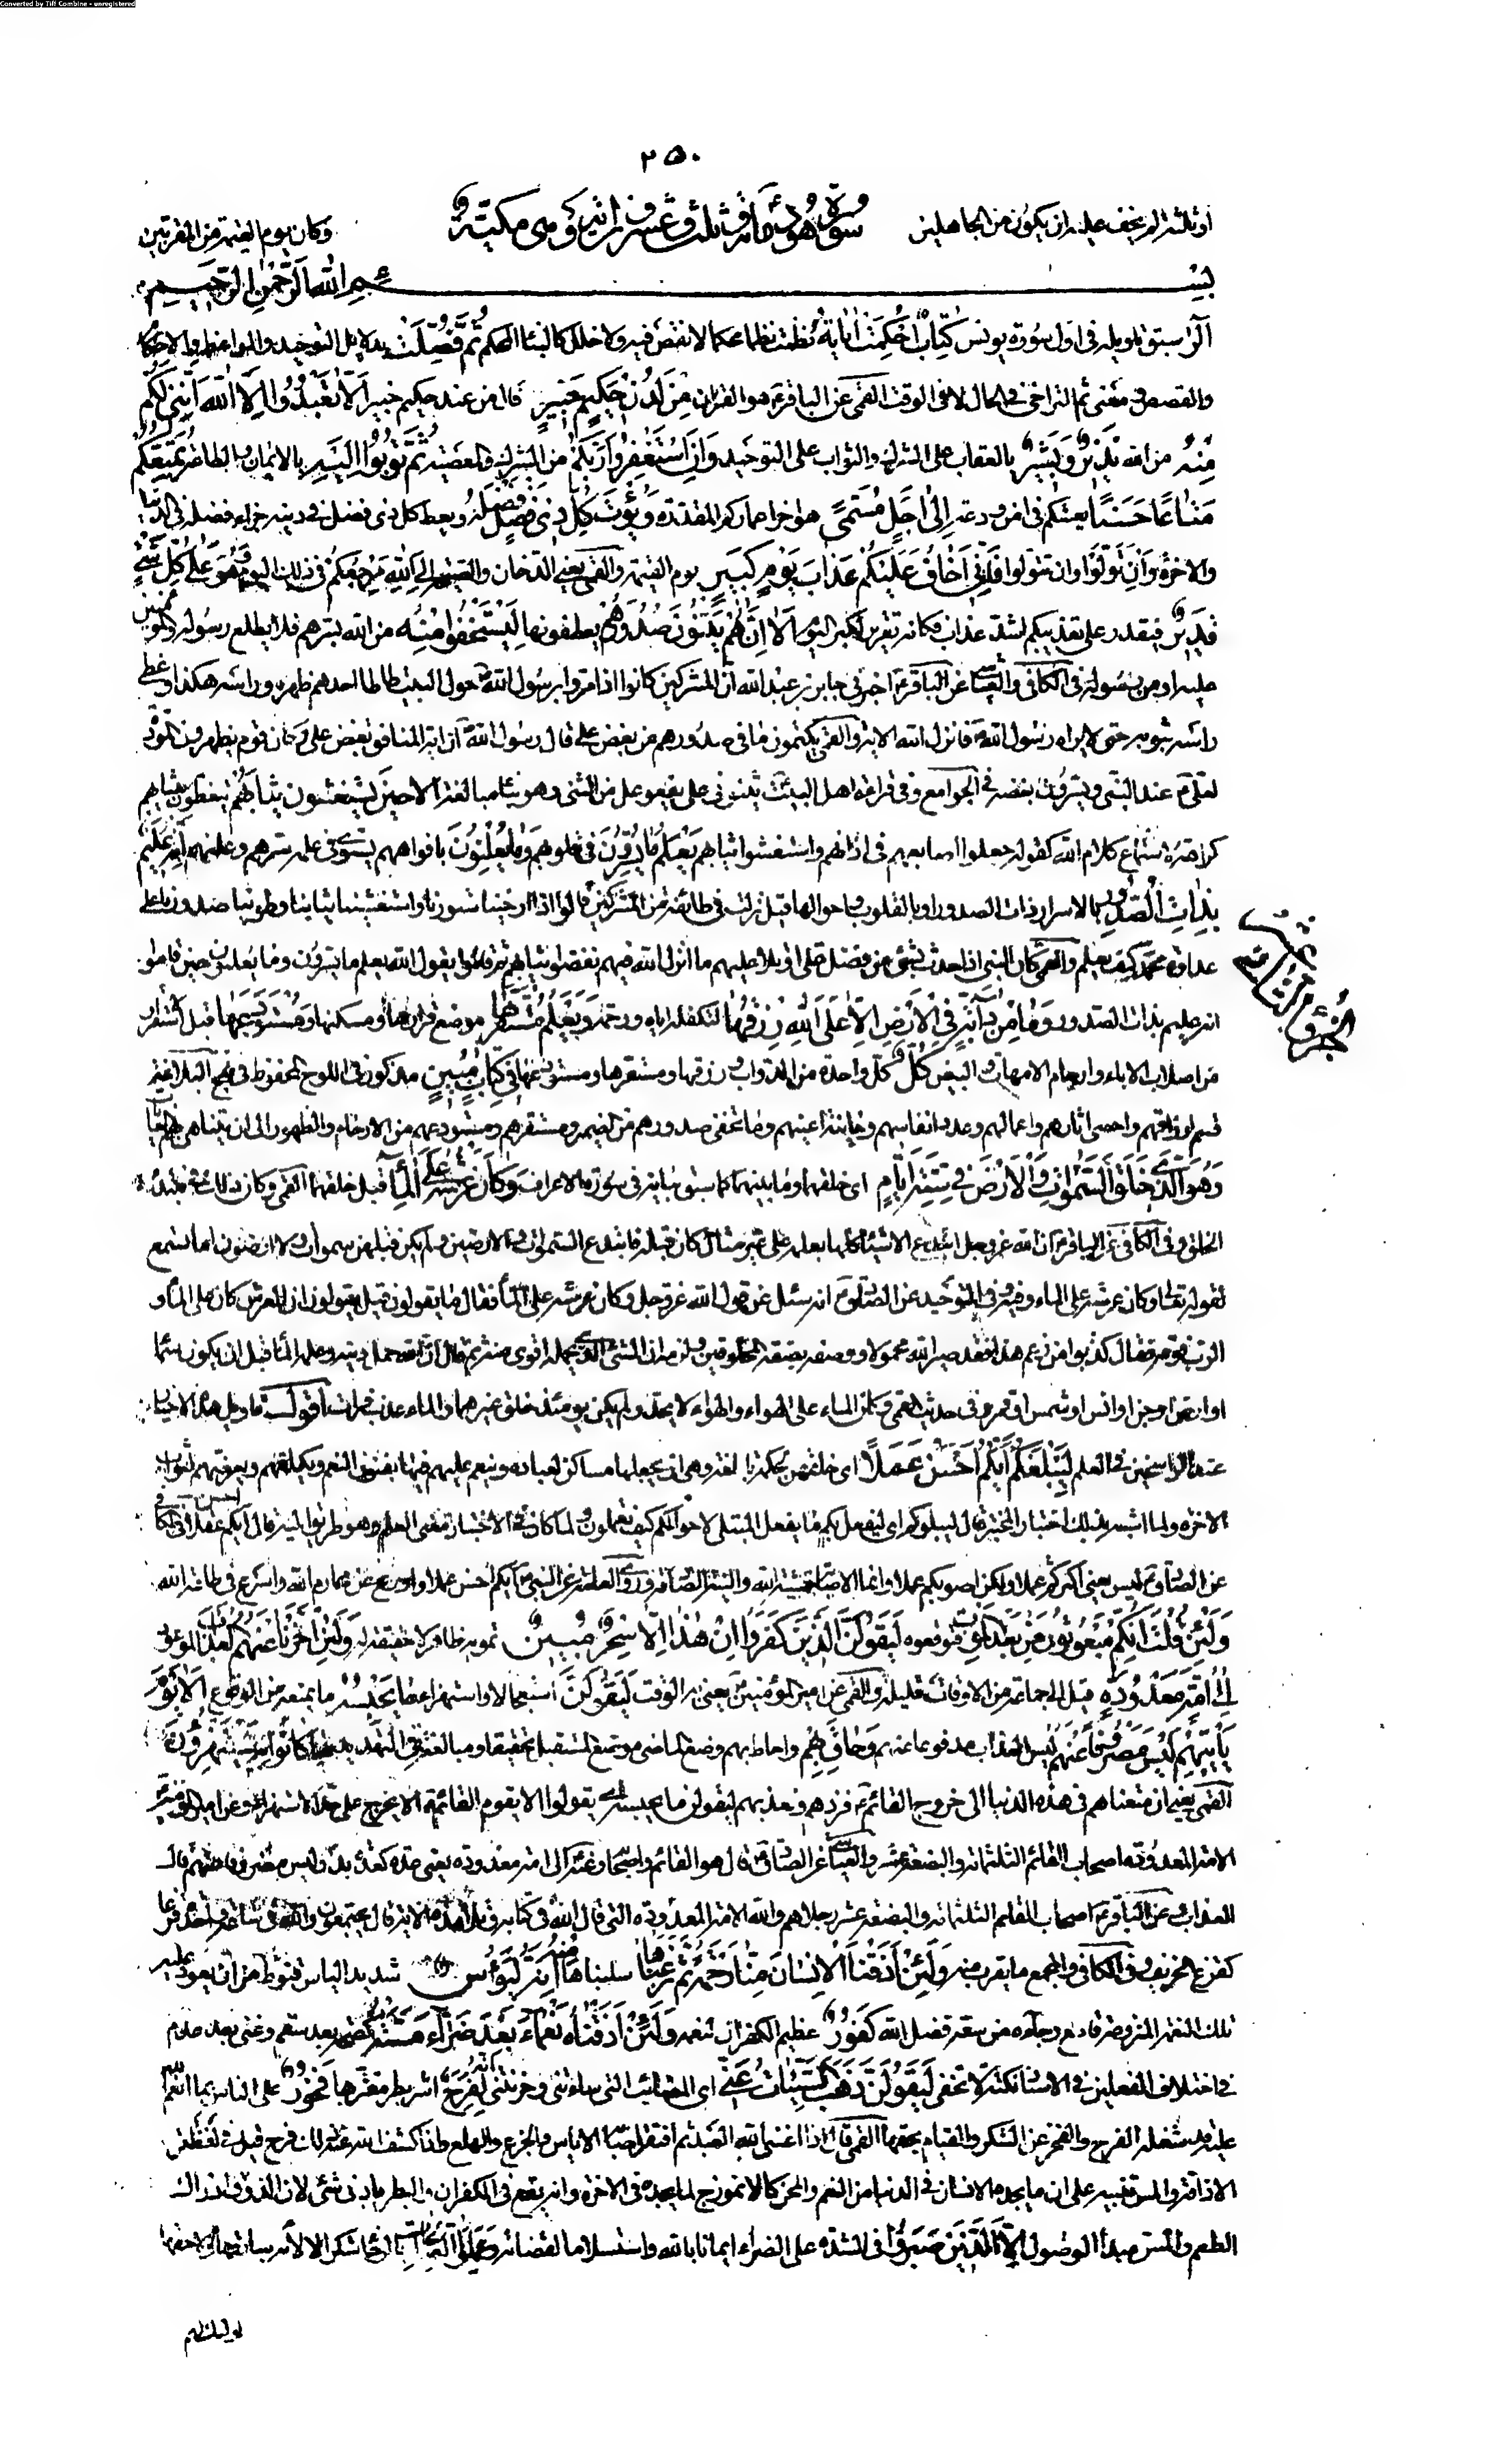 Converted by Tiff Combine - unregistered
٢٥٠
او ثلثة لم يخف عليه ان يكون من الجاهلين سورة هود مائة وثلث وعشرون اية وهي مكية وكان يوم القيمة من المقربين
بسم الله الرحمن الرحيم
الر سبق تاويله في اول سورة يونس كتاب احكمت اياته نظمت نظما محكما لا نقض فيه ولا خلل كالبناء المحكم ثم فصلت بدلايل التوحيد والمواعظ والاحكام
والقصص ومعنى ثم التراخي في الحال لا في الوقت القمي عن الباقر ع هو القران من لدن حكيم خبير قال من عند حكيم خبير الا تعبدوا الا الله انني لكم
منه من الله نذير وبشير بالعقاب على الشرك والثواب على التوحيد وان استغفروا ربكم من الشرك والمعصية ثم توبوا اليه بالايمان والطاعة يمتعكم
متاعا حسنا يعيشكم في امن ودعة الى اجل مسمى هو اخر اعماركم المقدرة ويؤت كل ذي فضل فضله ويعط كل ذي فضل في دينه جزاء فضله في الدنيا
والاخرة وان تولوا وان تتولوا فاني اخاف عليكم عذاب يوم كبير يوم القيمة والقمي يعني الدخان والصيحة الى الله مرجعكم في ذلك اليوم وهو على كل شئ
قدير فيقدر على تعذيبكم اشد عذاب فكانه تقرير لكبر اليوم الا انهم يثنون صدورهم يعطفونها ليستخفوا منه من الله بسرهم فلا يطلع رسوله والمؤمنين
عليه او من رسوله في الكافي والعياشي عن الباقر ع اخبرني جابر بن عبد الله ان المشركين كانوا اذا مروا برسول الله ص حول البيت طاطا احدهم ظهره وراسه هكذا وغطى
راسه بثوبه حتى لا يراه رسول الله ص فانزل الله الاية والقمي يكتمون ما في صدورهم من بغض علي قال رسول الله ص ان اية المنافق بغض علي وكان قوم يظهرون المودة
لعلي ع عند النبي ويسرون بغضه في الجوامع وفي قراءة اهل البيت يثنوني على يفعوعل من الثني وهو بناء مبالغة الا حين يستغشون ثيابهم يتغطون بثيابهم
كراهة استماع كلام الله كقوله جعلوا اصابعهم في اذانهم واستغشوا ثيابهم يعلم ما يسرون في قلوبهم وما يعلنون بافواههم يستوي في علمه سرهم وعلنهم انه عليم
بذات الصدور بالاسرار ذات الصدور او بالقلوب واحوالها قيل نزلت في طائفة من المشركين قالوا اذا ارخينا ستورنا واستغشينا ثيابنا وطوينا صدورنا على
عداوة محمد كيف يعلم والقمي كان النبي اذا حدث بشئ من فضل علي او تلا عليهم ما انزل الله فيهم نفضوا ثيابهم ثم قاموا يقول الله يعلم ما يسرون وما يعلنون حين قاموا
انه عليم بذات الصدور وما من دابة في الارض الا على الله رزقها لتكفله اياه ورحمة ويعلم مستقرها موضع قرارها ومسكنها ومستودعها قبل استقرار
من اصلاب الاباء وارحام الامهات والبيض كل كل واحدة من الدواب ورزقها ومستقرها ومستودعها في كتاب مبين مذكور في اللوح المحفوظ في نهج البلاغة
قسم ارزاقهم واحصى اثارهم واعمالهم وعدد انفاسهم وخاينة اعينهم وما تخفي صدورهم من الضمير ومستقرهم ومستودعهم من الارحام والظهور الى ان تتناهى بهم الغايات
وهو الذي خلق السموات والارض في ستة ايام اي خلقهما وما بينهما كما سبق بيانه في سورة الاعراف وكان عرشه على الماء قبل خلقهما القمي وكان ذلك في مبتدء
الخلق وفي الكافي عن الباقر ع ان الله عز وجل ابتدع الاشياء كلها بعلمه على غير مثال كان قبله فابتدع السموات والارضين ولم يكن قبلهن سموات ولا ارضون اما تسمع
لقوله تعالى وكان عرشه على الماء وفيه وفي التوحيد عن الصادق ع انه سئل عن قول الله عز وجل وكان عرشه على الماء فقال ما يقولون قيل يقولون ان العرش كان على الماء و
الرب فوقه فقال كذبوا من زعم هذا فقد صير الله محمولا ووصفه بصفة المخلوقين ولزمه ان الشئ الذي يحمله اقوى منه ثم قال ان الله حمل دينه وعلمه الماء قبل ان يكون سماء
او ارض او جن او انس او شمس او قمر وفي حديث القمي وكان الماء على الهواء والهواء لا يحد ولم يكن يومئذ خلق غيرهما والماء عذب فرات اقول تاويل هذه الاخبار
عند الراسخين في العلم ليبلوكم ايكم احسن عملا اي خلقهن لحكمة بالغة وهي ان يجعلها مساكن لعباده وينعم عليهم فيها بفنون النعم ويكلفهم ويعرضهم لثواب
الاخرة ولما اشبه ذلك اختبار المختبر قال ليبلوكم اي ليفعل بكم ما يفعل المبتلي لاحوالكم كيف تعملون ولما كان في الاختبار معنى العلم وهو طريق اليه قال ايكم احسن عملا في الكافي
عن الصادق ع ليس يعني اكثركم عملا ولكن اصوبكم عملا وانما الاصابة خشية الله والنية الصادقة وروى العامة عن النبي ص ايكم احسن عملا واورع عن محارم الله واسرع في طاعة الله
ولئن قلت انكم مبعوثون من بعد الموت فتوقعوه ليقولن الذين كفروا ان هذا الا سحر مبين تمويه ظاهر لا حقيقة له ولئن اخرنا عنهم العذاب الموعود
الى امة معدودة قيل الى جماعة من الاوقات قليلة والقمي عن امير المؤمنين ع يعني به الوقت ليقولن استعجالا واستهزاء ما يحبسه ما يمنعه من الوقوع الا يوم
ياتيهم ليس مصروفا عنهم ليس العذاب مدفوعا عنهم وحاق بهم واحاط بهم وضع الماضي موضع المستقبل تحقيقا ومبالغة في التهديد ما كانوا به يستهزؤن
القمي يعني ان متعناهم في هذه الدنيا الى خروج القائم ع فنردهم ونعذبهم ليقولن ما يحبسه اي يقولوا الا يقوم القائم ع الا يخرج على حد الاستهزاء وعن امير المؤمنين ع
الامة المعدودة اصحاب القائم الثلثمائة والبضعة عشر والعياشي عن الصادق ع قال هو القائم واصحابه وعنه ع الى امة معدودة يعني عدة كعدة بدر وليس مصروفا عنهم قال
العذاب وعن الباقر ع اصحاب القائم الثلثمائة والبضعة عشر رجلا هم والله الامة المعدودة التي قال الله في كتابه وتلا هذه الاية قال يجتمعون والله في ساعة واحدة قزعا
كقزع الخريف وفي الكافي والمجمع ما يقرب منه ولئن اذقنا الانسان منا رحمة ثم نزعناها سلبناها منه انه ليؤس شديد الياس قنوط من ان يعود عليه
تلك النعمة المنزوعة قاطع رجاءه من سعة فضل الله كفور عظيم الكفران لنعمه ولئن اذقناه نعماء بعد ضراء مسته كصحة بعد سقم وغنى بعد عدم
وفي اختلاف الفعلين في الاسناد نكتة لا تخفى ليقولن ذهب السيئات عني اي المصائب التي ساءتني وحزنتني انه لفرح اشر بطر مغتر بها فخور على الناس بما انعم الله
عليه قد شغله الفرح والفخر عن الشكر والقيام بحقها القمي قال اذا اغنى الله العبد ثم افتقر اصابه الاياس والجزع والهلع واذا كشف الله عنه ذلك فرح قيل في لفظتي
الاذاقة والمس تنبيه على ان ما يجده الانسان في الدنيا من النعم والمحن كالانموذج لما يجده في الاخرة وانه يقع في الكفران والبطر بادنى شئ لان الذوق ادراك
الطعم والمس مبدأ الوصول الا الذين صبروا في الشدة على الضراء ايمانا بالله واستسلاما لقضائه وعملوا الصالحات في الرخاء شكرا لالائه سابقها ولاحقها
اولئك لهم
الجزؤ من الثانى عشر